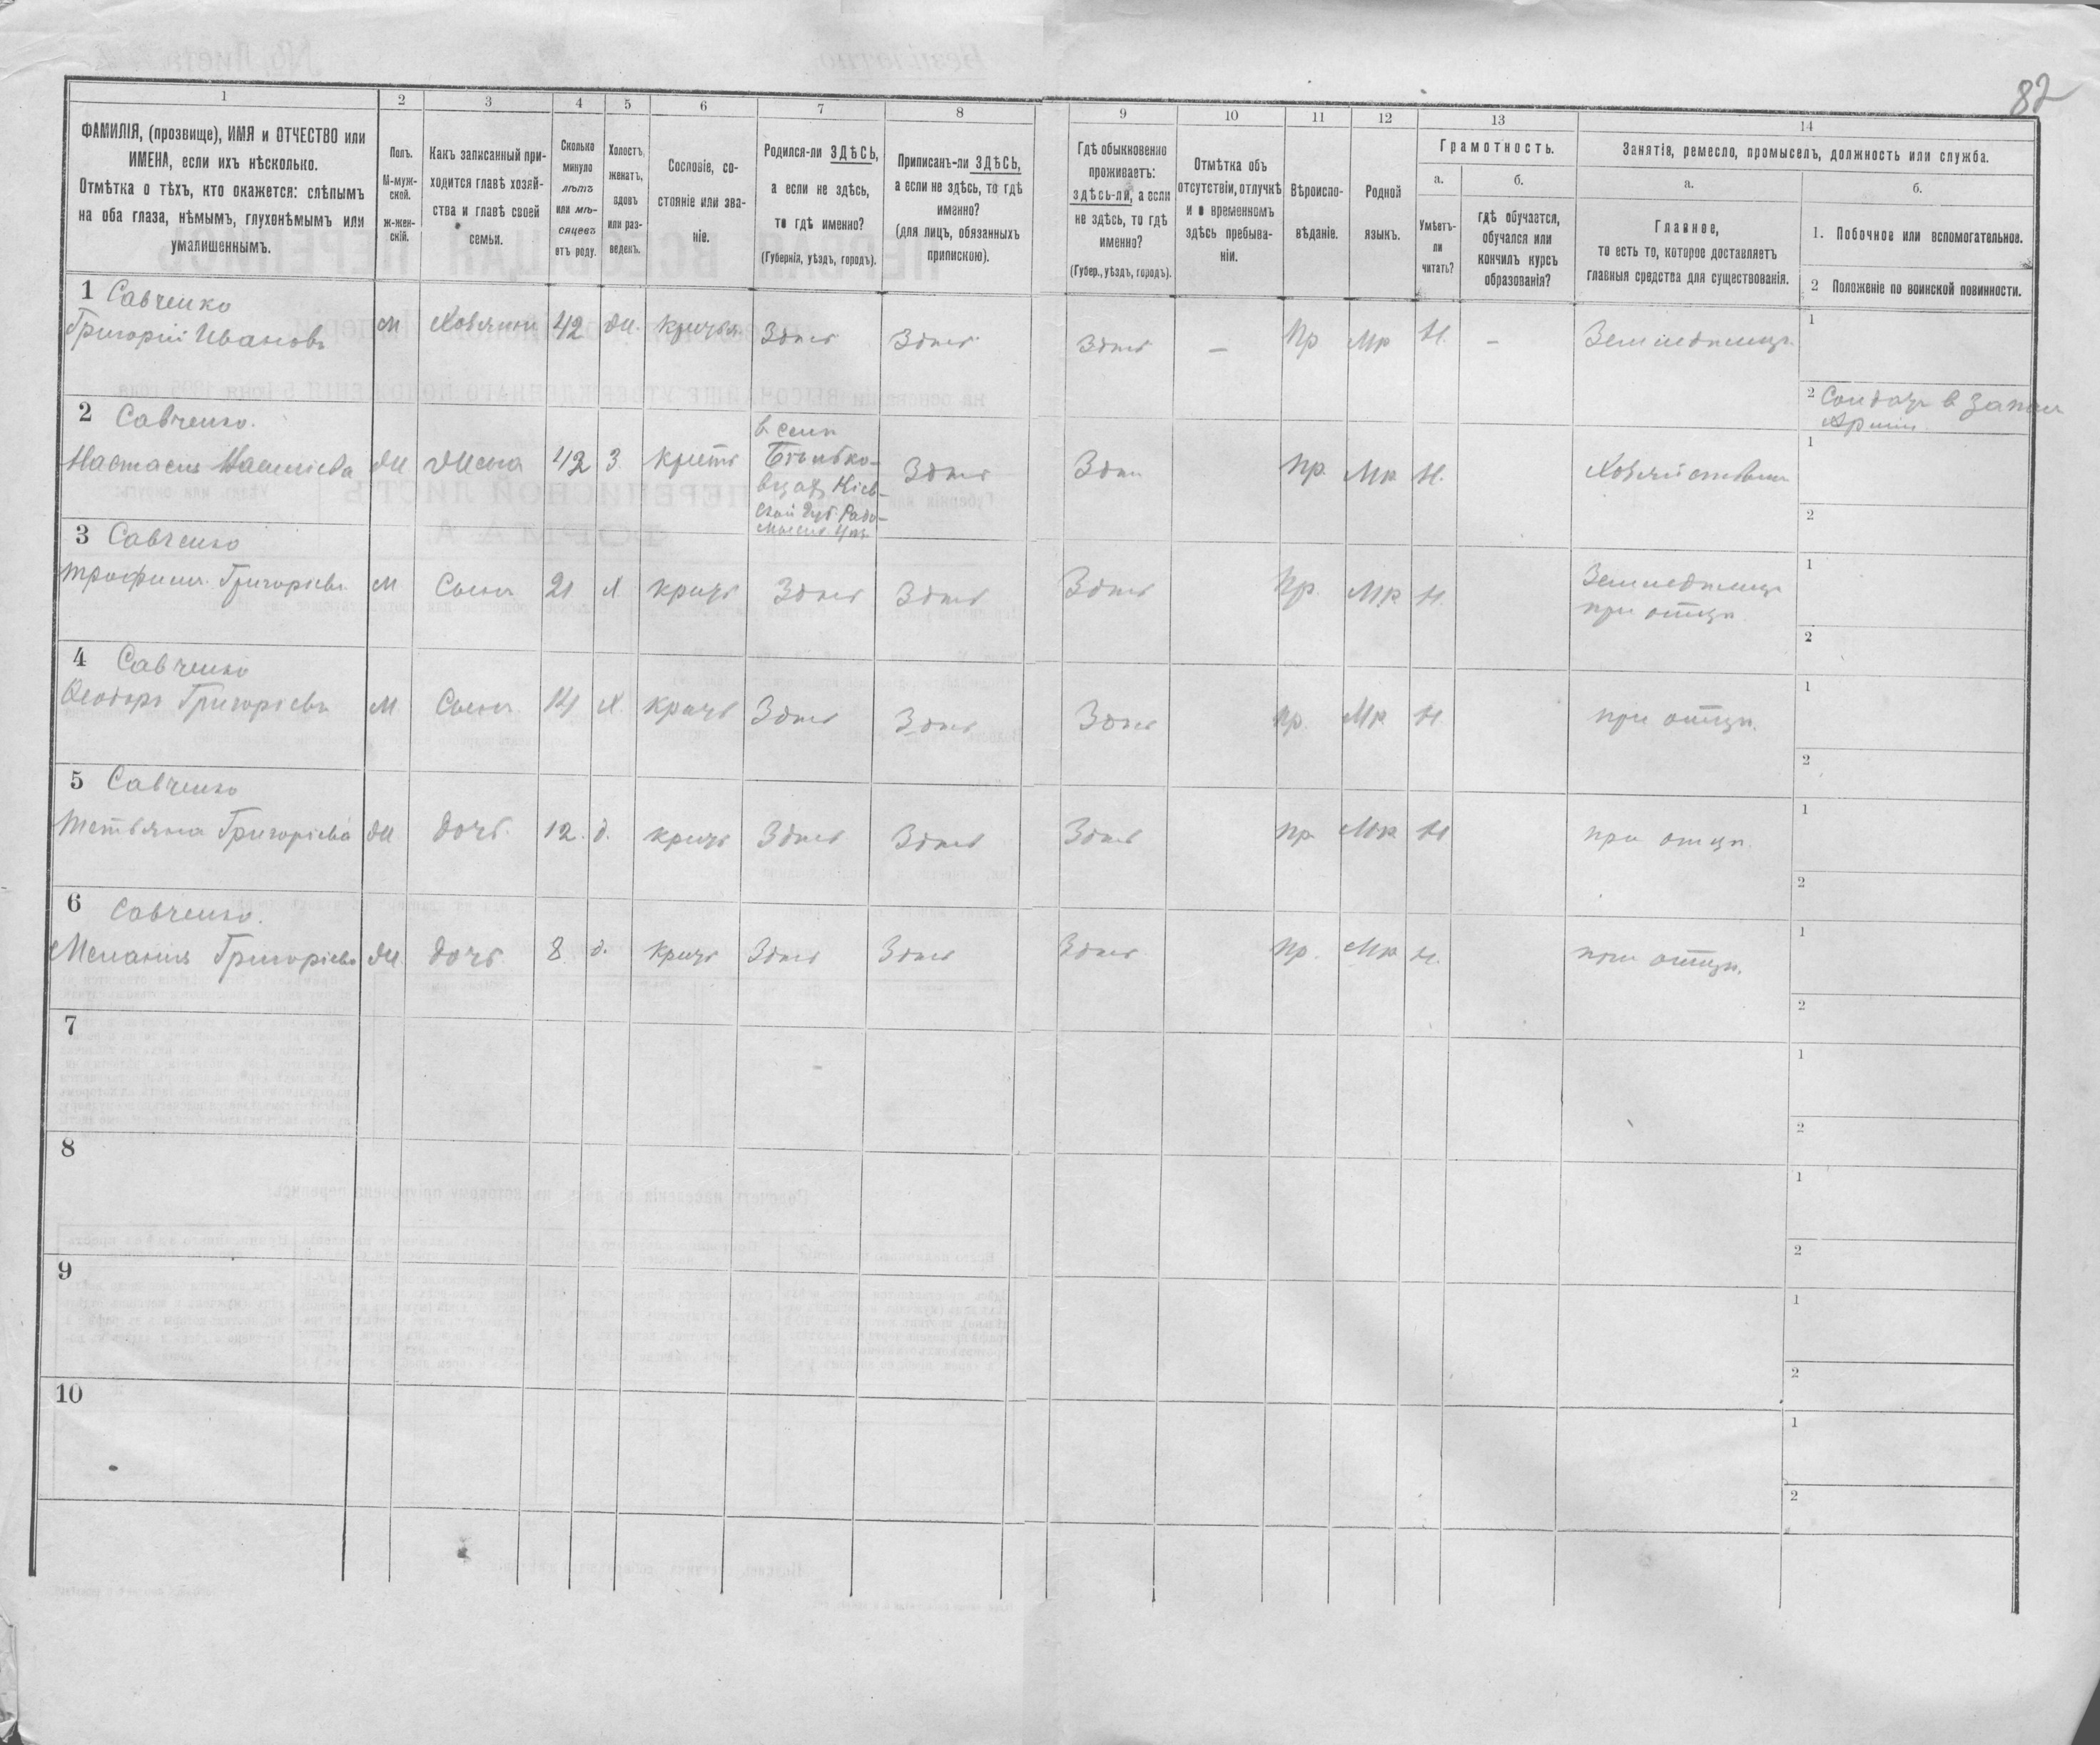 82
1 2 3 4 5 6 7 8 9 10 11 12 13 14
ФАМИЛІЯ, (прозвище), ИМЯ и ОТЧЕСТВО или
ИМЕНА, если ихъ нѣсколько.
Отмѣтка о тѣхъ, кто окажется: слѣпымъ
на оба глаза, нѣмымъ, глухонѣмымъ или
умалишеннымъ.
Полъ.
М-муж-
ской.
ж-жен-
скій.
Какъ записанный при-
ходится главѣ хозяй-
ства и главѣ своей
семьи.
Сколько
минуло
лѣтъ
или мѣ-
сяцевъ
отъ роду.
Холостъ,
женатъ,
вдовъ
или раз-
веденъ.
Сословіе, со-
стояніе или зва-
ніе.
Родился-ли ЗДѢСЬ,
а если не здѣсь,
то гдѣ именно?
(Губернія, уѣздъ, городъ).
Приписанъ-ли ЗДѢСЬ,
а если не здѣсь, то гдѣ
именно?
(для лицъ, обязанныхъ
припискою).
Гдѣ обыкновенно
проживаетъ:
ЗДѢСЬ-ЛИ, а если
не здѣсь, то гдѣ
именно?
(Губер., уѣздъ, городъ).
Отмѣтка объ
отсутствіи, отлучкѣ
и о временномъ
здѣсь пребыва-
ніи.
Вѣроиспо-
вѣданіе.
Родной
языкъ.
Грамотность.
а.
Умѣетъ-
ли
читать?
б.
гдѣ обучается,
обучался или
кончилъ курсъ
образованія?
Занятіе, ремесло, промыселъ, должность или служба.
а.
Главное,
то есть то, которое доставляетъ
главныя средства для существованія.
б.
1. Побочное или вспомогательное.
2 Положеніе по воинской повинности.
1 Савченко
Григорій Ивановъ М Хозяинъ 42 Ж. Здѣсь Здѣсь Здѣсь — Пр Мр Н. — Земледѣлецъ 1
2 Солдатъ в запасѣ
Арміи
2 Савченко.
Настасія Ж Жена 42 З в селѣ
Кіев-
ской Губ. Радо-
Здѣсь Здѣсь Пр. Мр Н. 1
2
3 Савченко
Трофимъ Григорієвъ М Сынъ 21 Х Здѣсь Здѣсь Здѣсь Пр. Мр Н. Земледѣлецъ
при отцѣ 1
2
4 Савченко
Ѳеодоръ Григорієвъ М Сынъ 14 Х. Здѣсь Здѣсь Здѣсь пр. Мр Н. при отцѣ. 1
2
5 Савченко
Тетьяна Григорієва Ж дочь 12. д. Здѣсь Здѣсь Здѣсь пр Мр Н при отцѣ. 1
2
6 Савченко.
Меланія Григорієва Ж. дочь 8. д. Здѣсь Здѣсь Здѣсь Пр. Мр Н. при отцѣ. 1
2
7 1
2
8 1
2
9 1
2
10 1
2